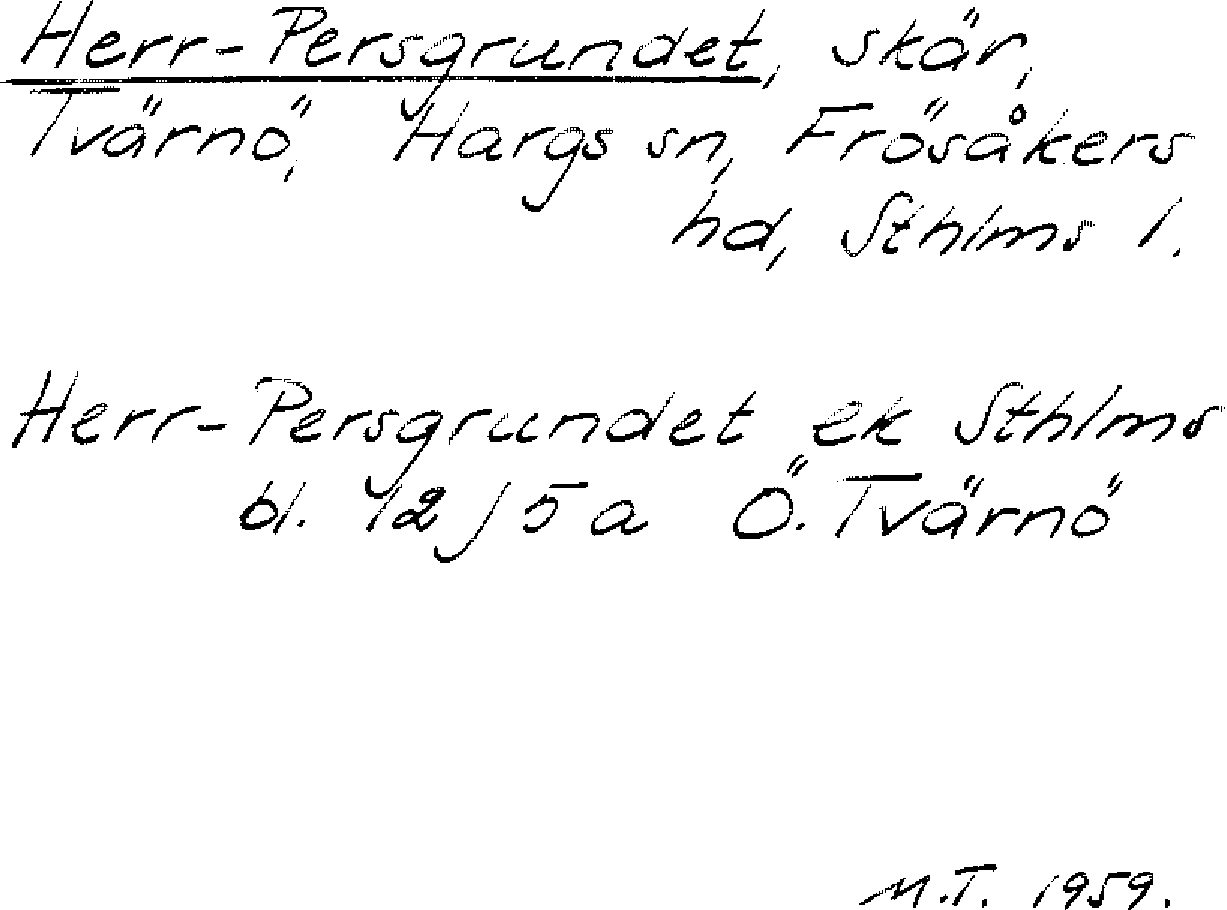 Herr-Persgrundet, skär,
Tvärnö, Hargs sn, Frösåkers
hd, Sthlms l.
Herr-Persgrundet ek Sthlms
bl. 12 J 5 a Ö. Tvärnö
M.T. 1959.